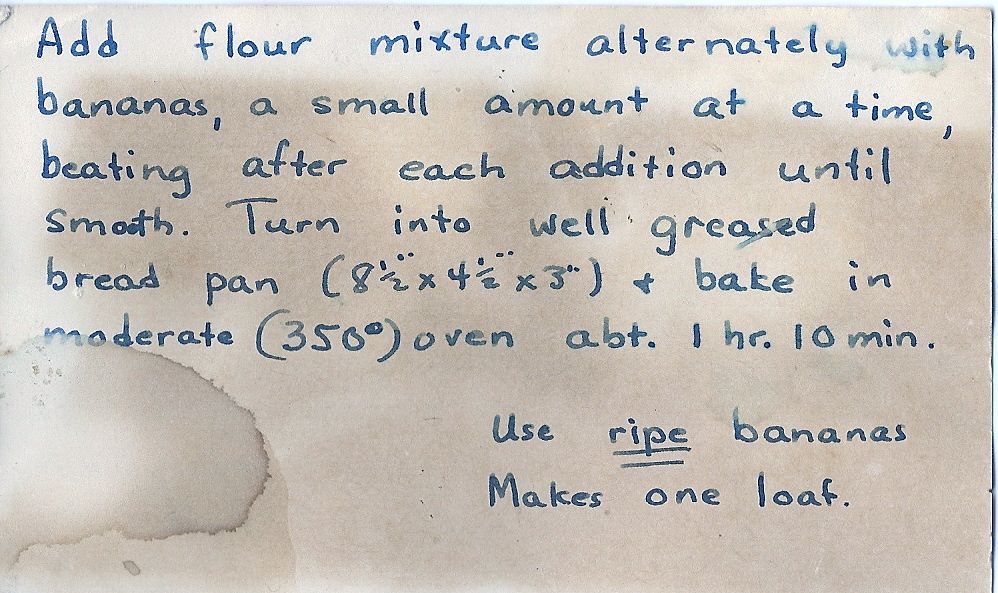 Add flour mixture alternately with
bananas, a small amount at a time,
beating after each addition until
smooth. Turn into well greased
bread pan (8½" x 4½" x 3") & bake in
moderate (350°) oven abt. 1 hr. 10 min.
Use ripe bananas
Makes one loaf.